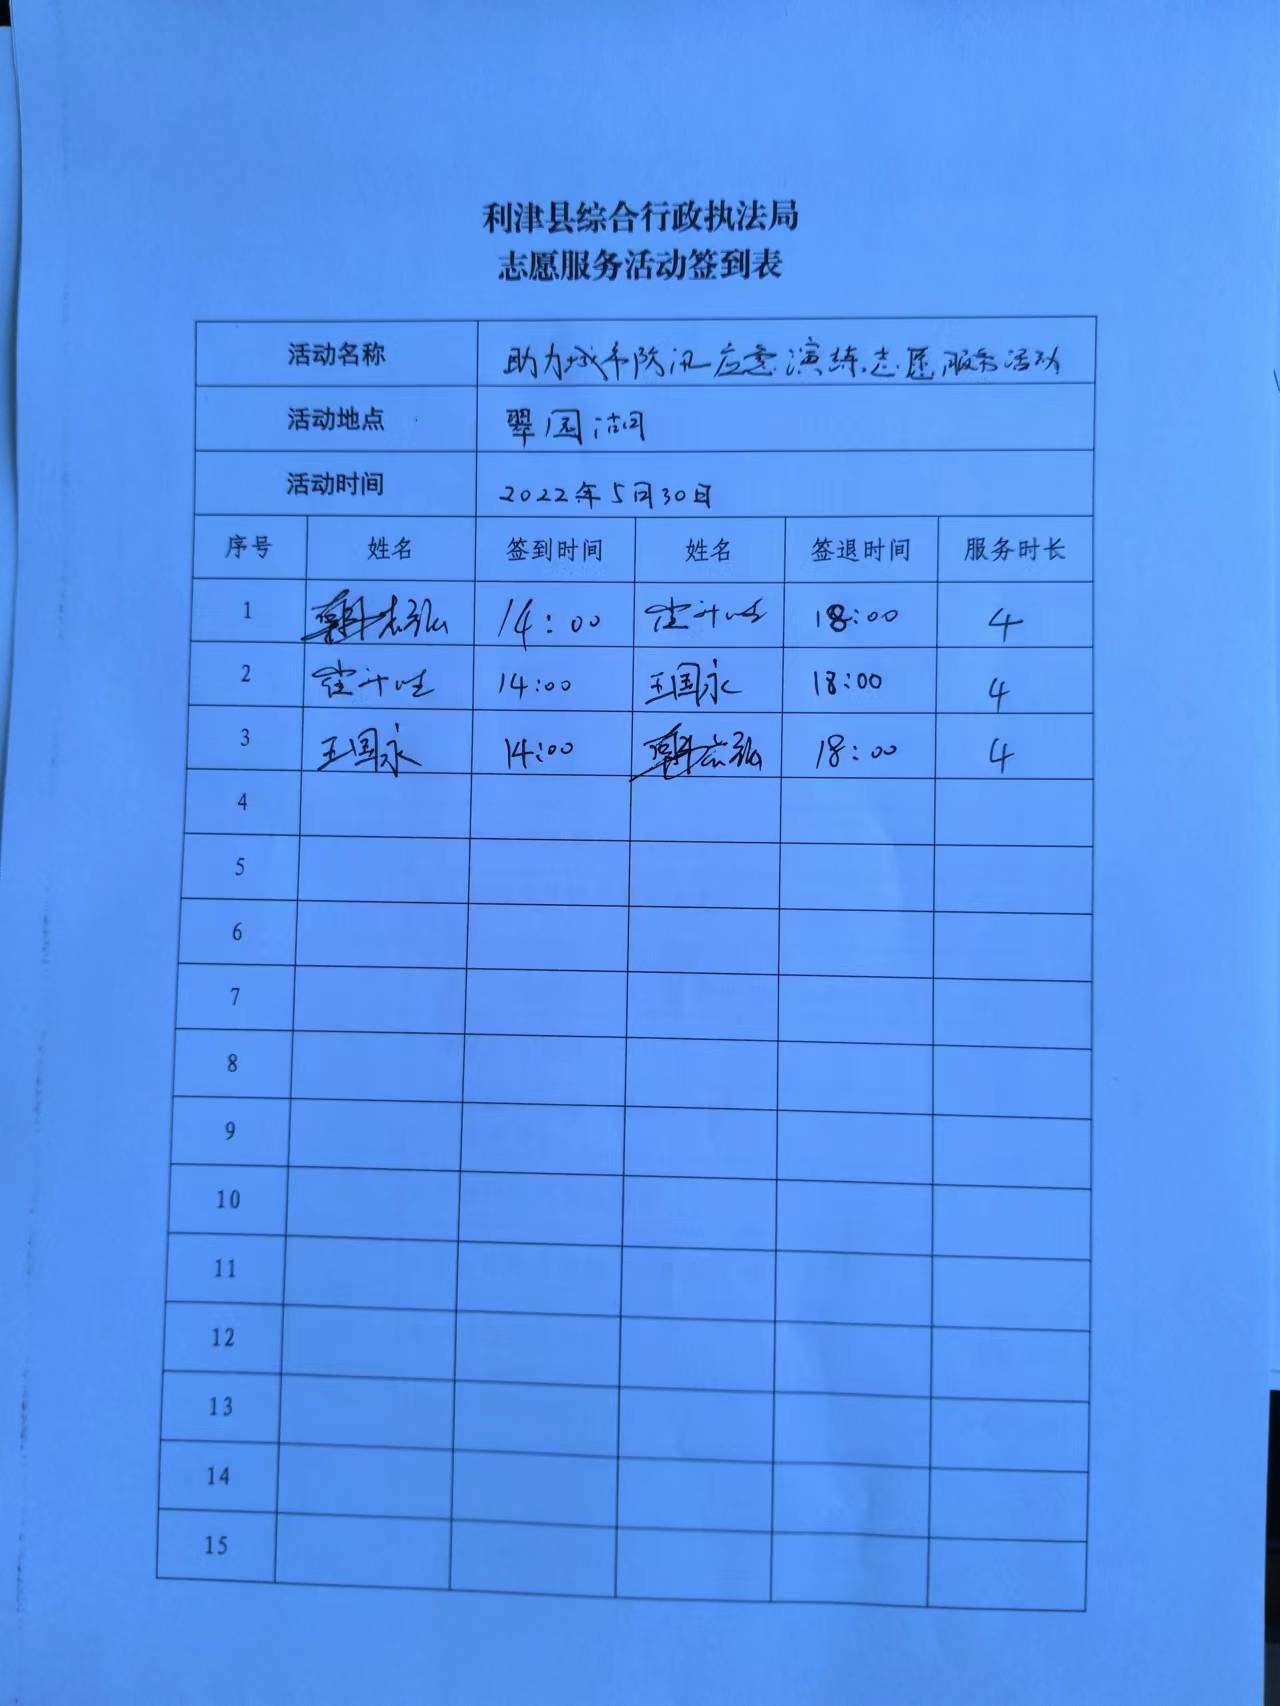 利津县综合行政执法局
志愿服务活动签到表
活动名称 助力城市防汛应急演练志愿服务活动
活动地点 翠园湖
活动时间 2022年5月30日
序号 姓名 签到时间 姓名 签退时间 服务时长
1 14:00 18:00 4
2 14:00 王国永 18:00 4
3 王国永 14:00 18:00 4
4
5
6
7
8
9
10
11
12
13
14
15